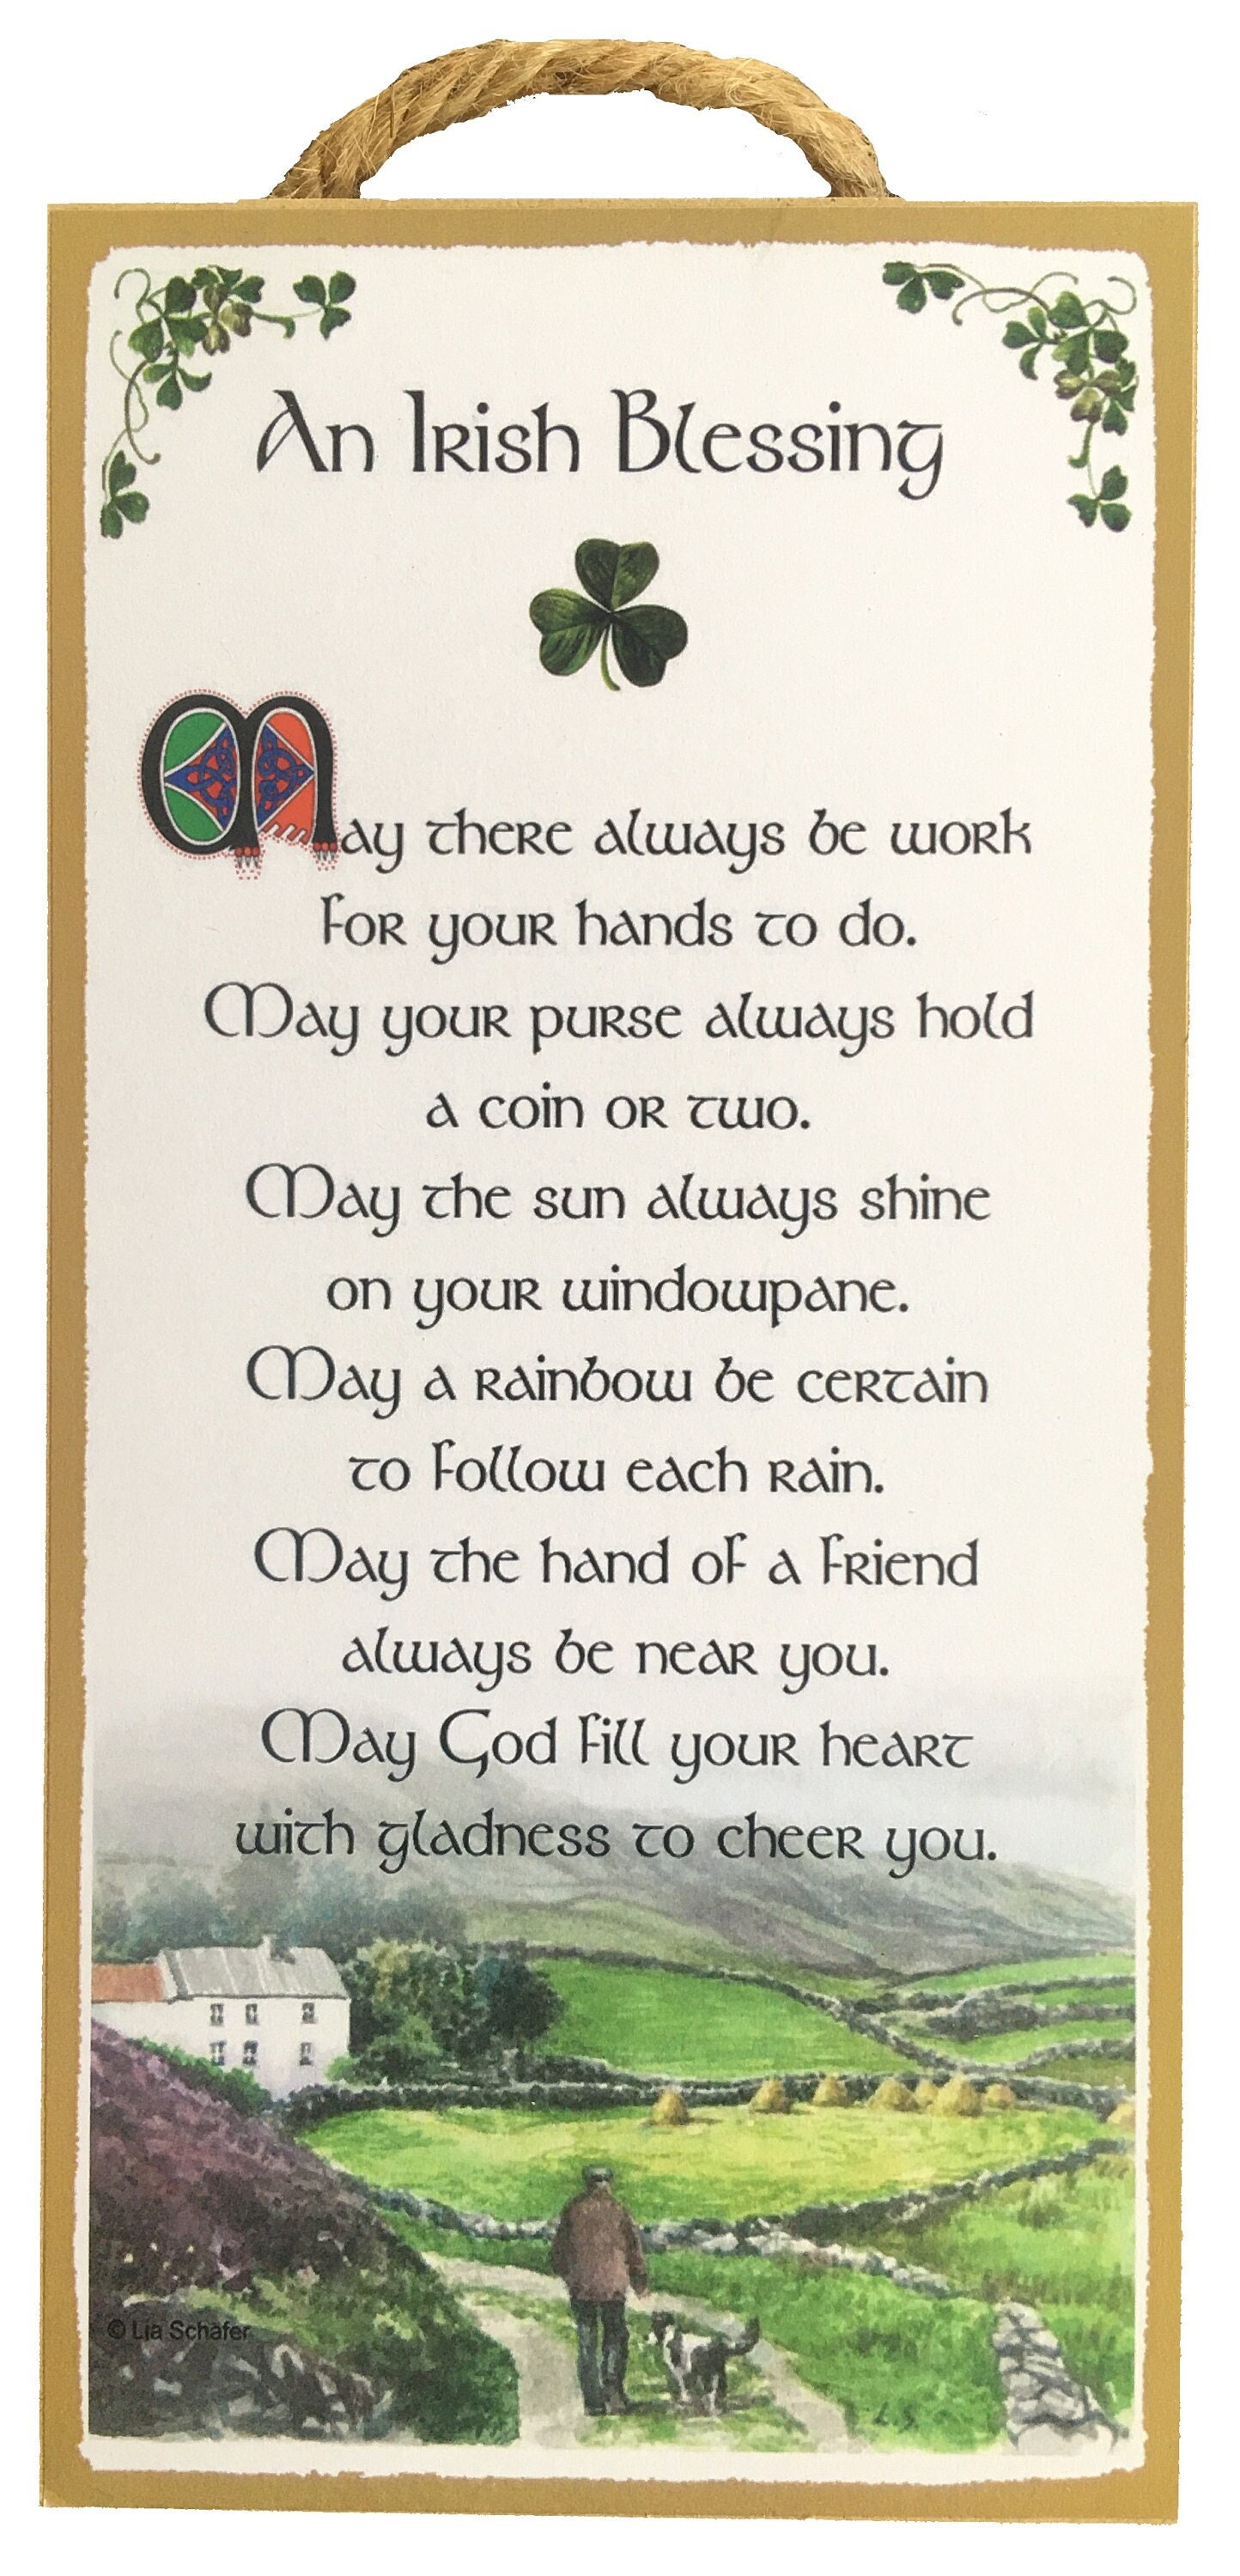 An Irish Blessing
May there always be work
for your hands to do.
May your purse always hold
a coin or two.
May the sun always shine
on your windowpane.
May a rainbow be certain
to follow each rain.
May the hand of a friend
always be near you.
May God fill your heart
with gladness to cheer you.
© Lia Schäfer
L.S